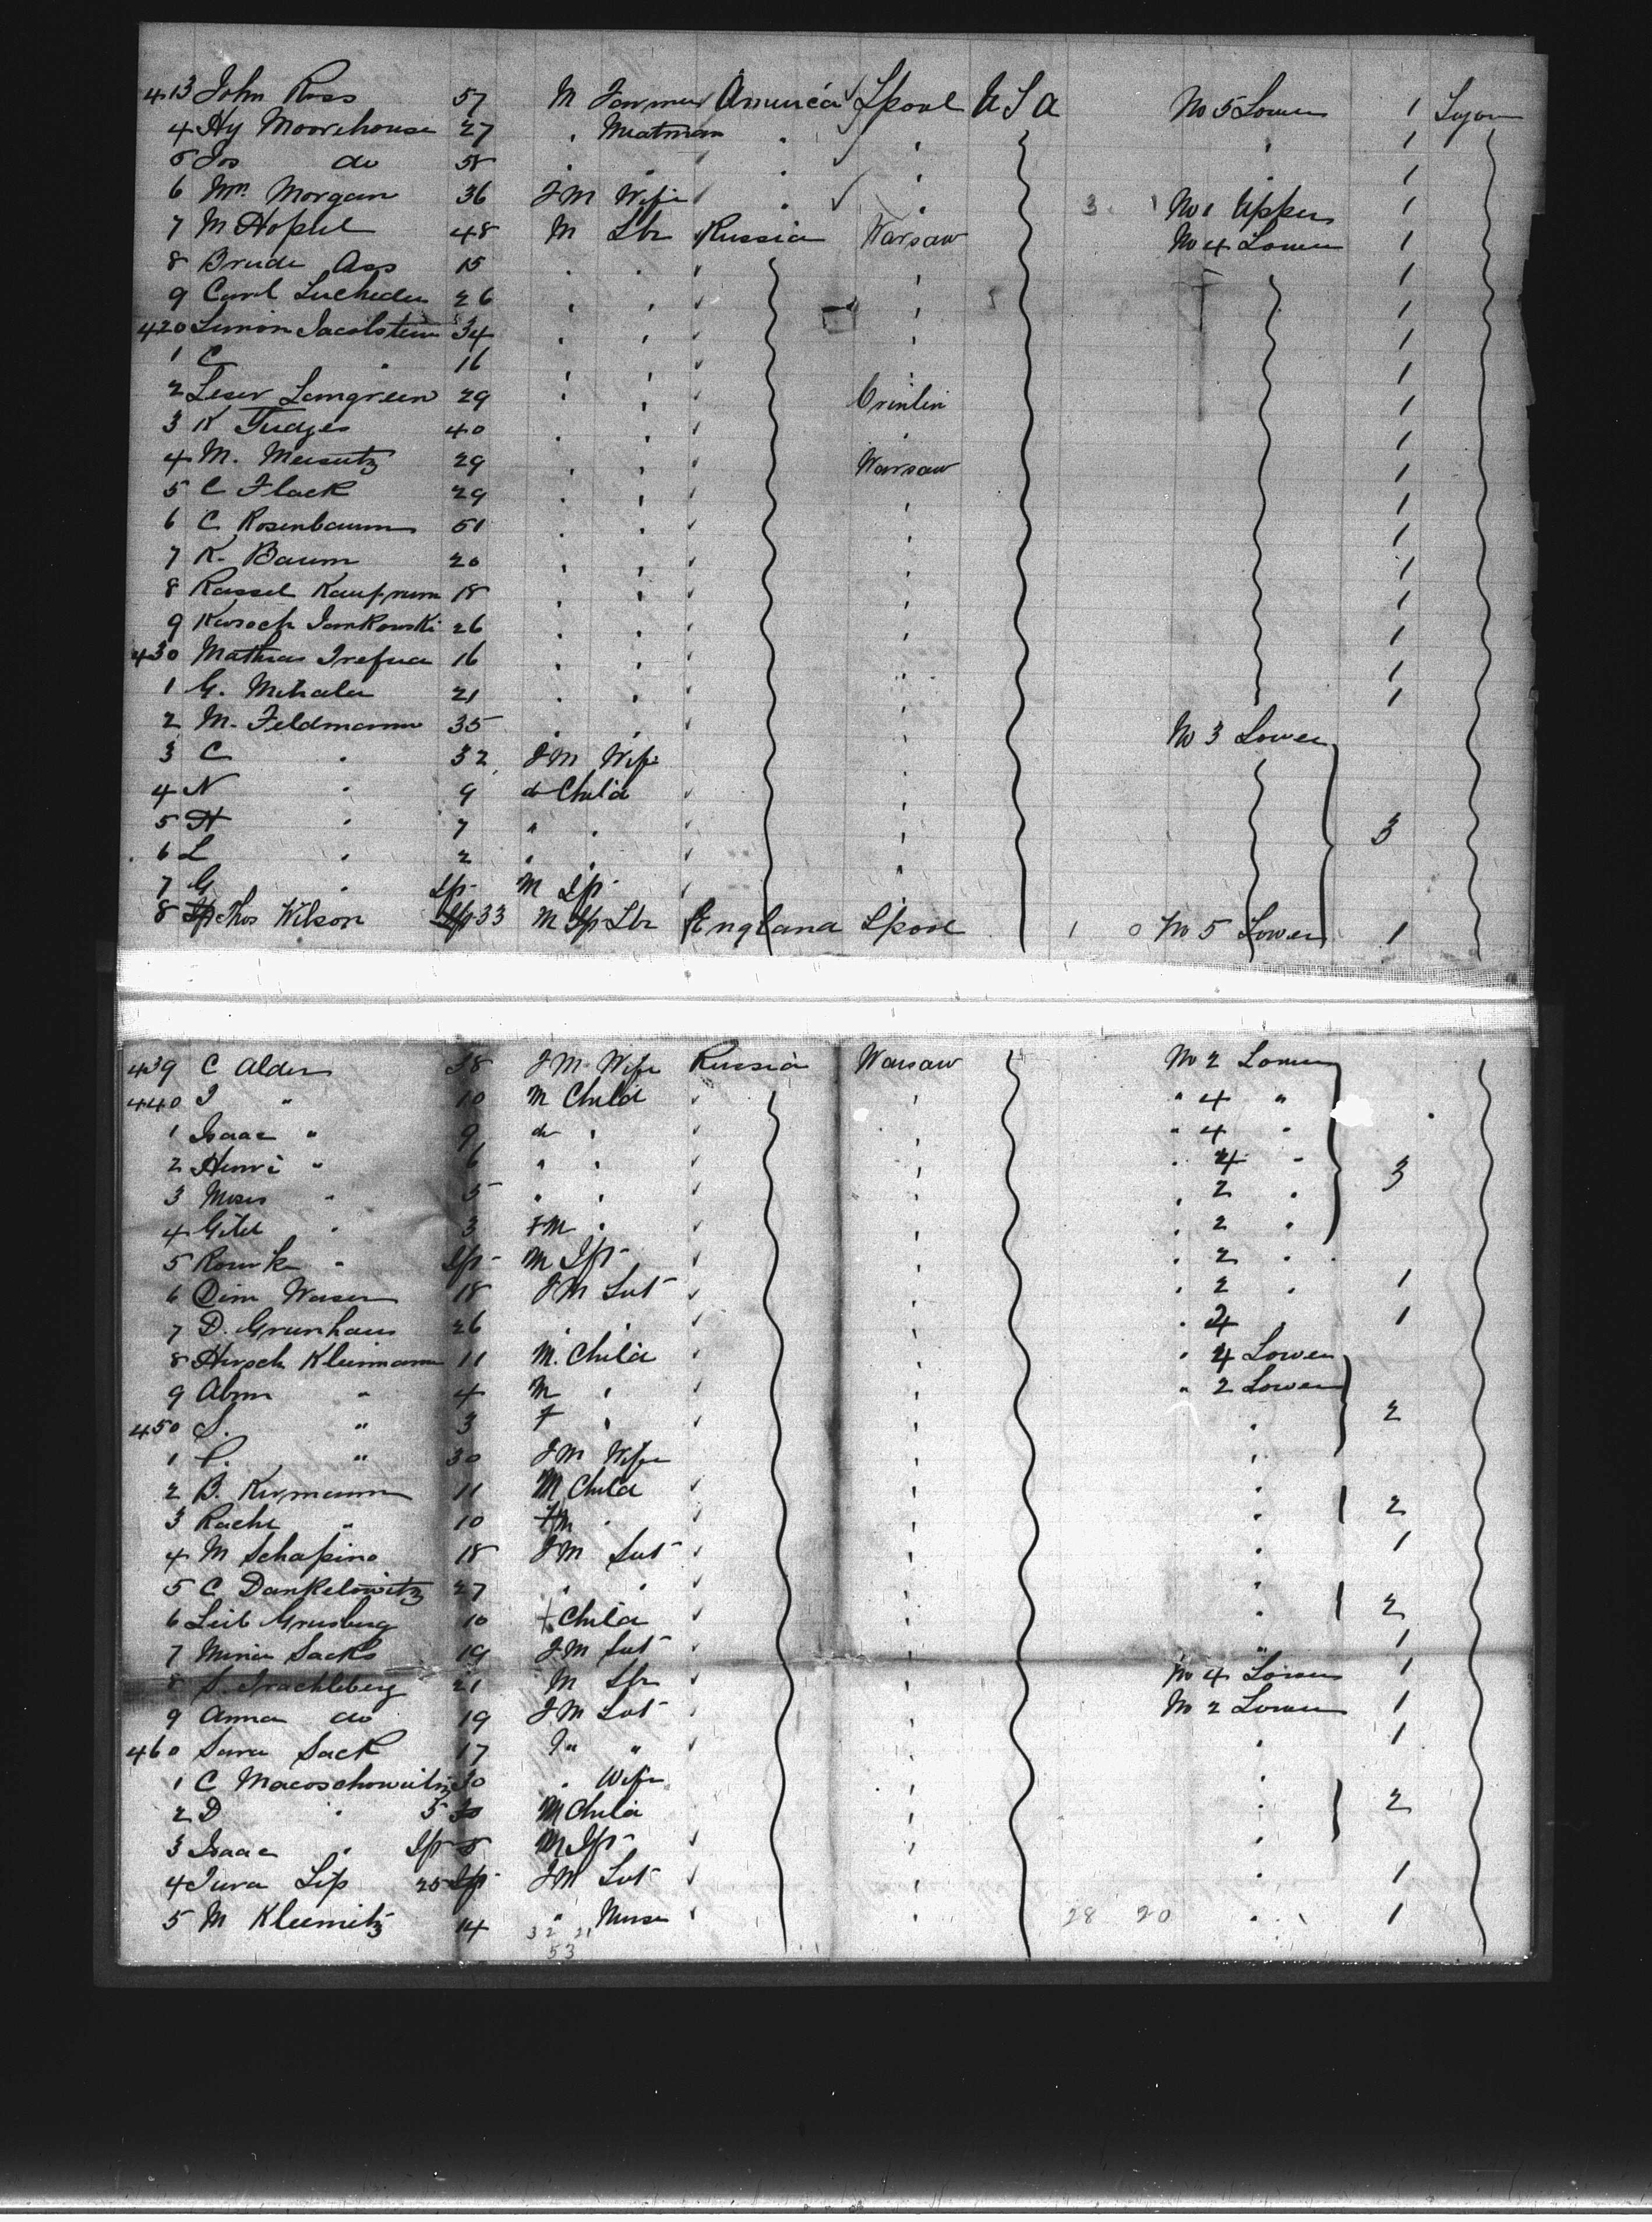 413 John Ross 57 M Farmer America Lpool U S A No 5 Lower 1 Sojour
4 Hy Moorehouse 27 " Meatman " " " 1
5 Jos do 58 " " " " " 1
6 Mrs. Morgan 36 F M Wife " " 3 1 No 1 Upper 1
7 M Hopfel 48 M Lbr Russia Warsaw No 4 Lower 1
8 Brude Ass 15 " " " 1
9 Carl 26 " " " 1
420 Simon Jacolstein 34 " " " 1
1 C " 16 " " " 1
2 Leser Lamgreen 29 " " 1
3 K Tudges 40 " " " 1
4 M. Meisutz 29 " " Warsaw 1
5 C Flack 29 " " " 1
6 C Rosenbaum 51 " " " 1
7 K. Baum 20 " " " 1
8 Rassel 18 " " " 1
9 Jankowski 26 " " " 1
430 Mathias 16 " " " 1
1 G. 21 " " " 1
2 M. Feldmann 35 " " " No 3 Lower
3 C " 32 F M Wife "
4 N " 9 do Child "
5 H " 7 " " " 3
6 L " 2 " " "
7 G " Ip M Ip "
8 Thos Wilson 33 M Lbr England Lpool 1 0 No 5 Lower 1
439 C Alder 38 F M Wife Russia Warsaw No 2 Lower
440 J " 10 M Child " " 4 "
1 Isaac " 9 do " " " 4 "
2 Henri " 6 " " " " 4 " 3
3 Moses " 5 " " " " 2 "
4 Gitel " 3 F M " " " 2 "
5 " Ip M Ip " " 2 "
6 Dim Waser 18 F M Svt " " 2 " 1
7 D. Grunhaus 26 " " " " 2 " 1
8 Hirsch Kleimann 11 M. Child " " 4 Lower
9 Abm " 4 M " " " 2 Lower
450 S. " 3 F " " " 2
1 P. " 30 F M Wife " "
2 B. Kirmann 11 M Child " "
3 Rachl " 10 F M " " " 2
4 M Schapino 18 F M Svt " " 1
5 C Dankelowitz 27 " " " "
6 Leib Grusberg 10 f Child " " 2
7 Minie Sacks 19 F M Svt " " 1
8 S. Trachtleberg 21 M Lbr " No 4 Lower 1
9 Anna do 19 F M Svt " No 2 Lower 1
460 Sara Sack 17 F " " " 1
1 C Macoschowitz 30 " Wife " "
2 D " 5 M Child " " 2
3 Isaac " Ip M Ip " "
4 Lip 25 F M Svt " " 1
5 M Kleemitz 14 " Nurse " 28 20 " 1
32 21
53